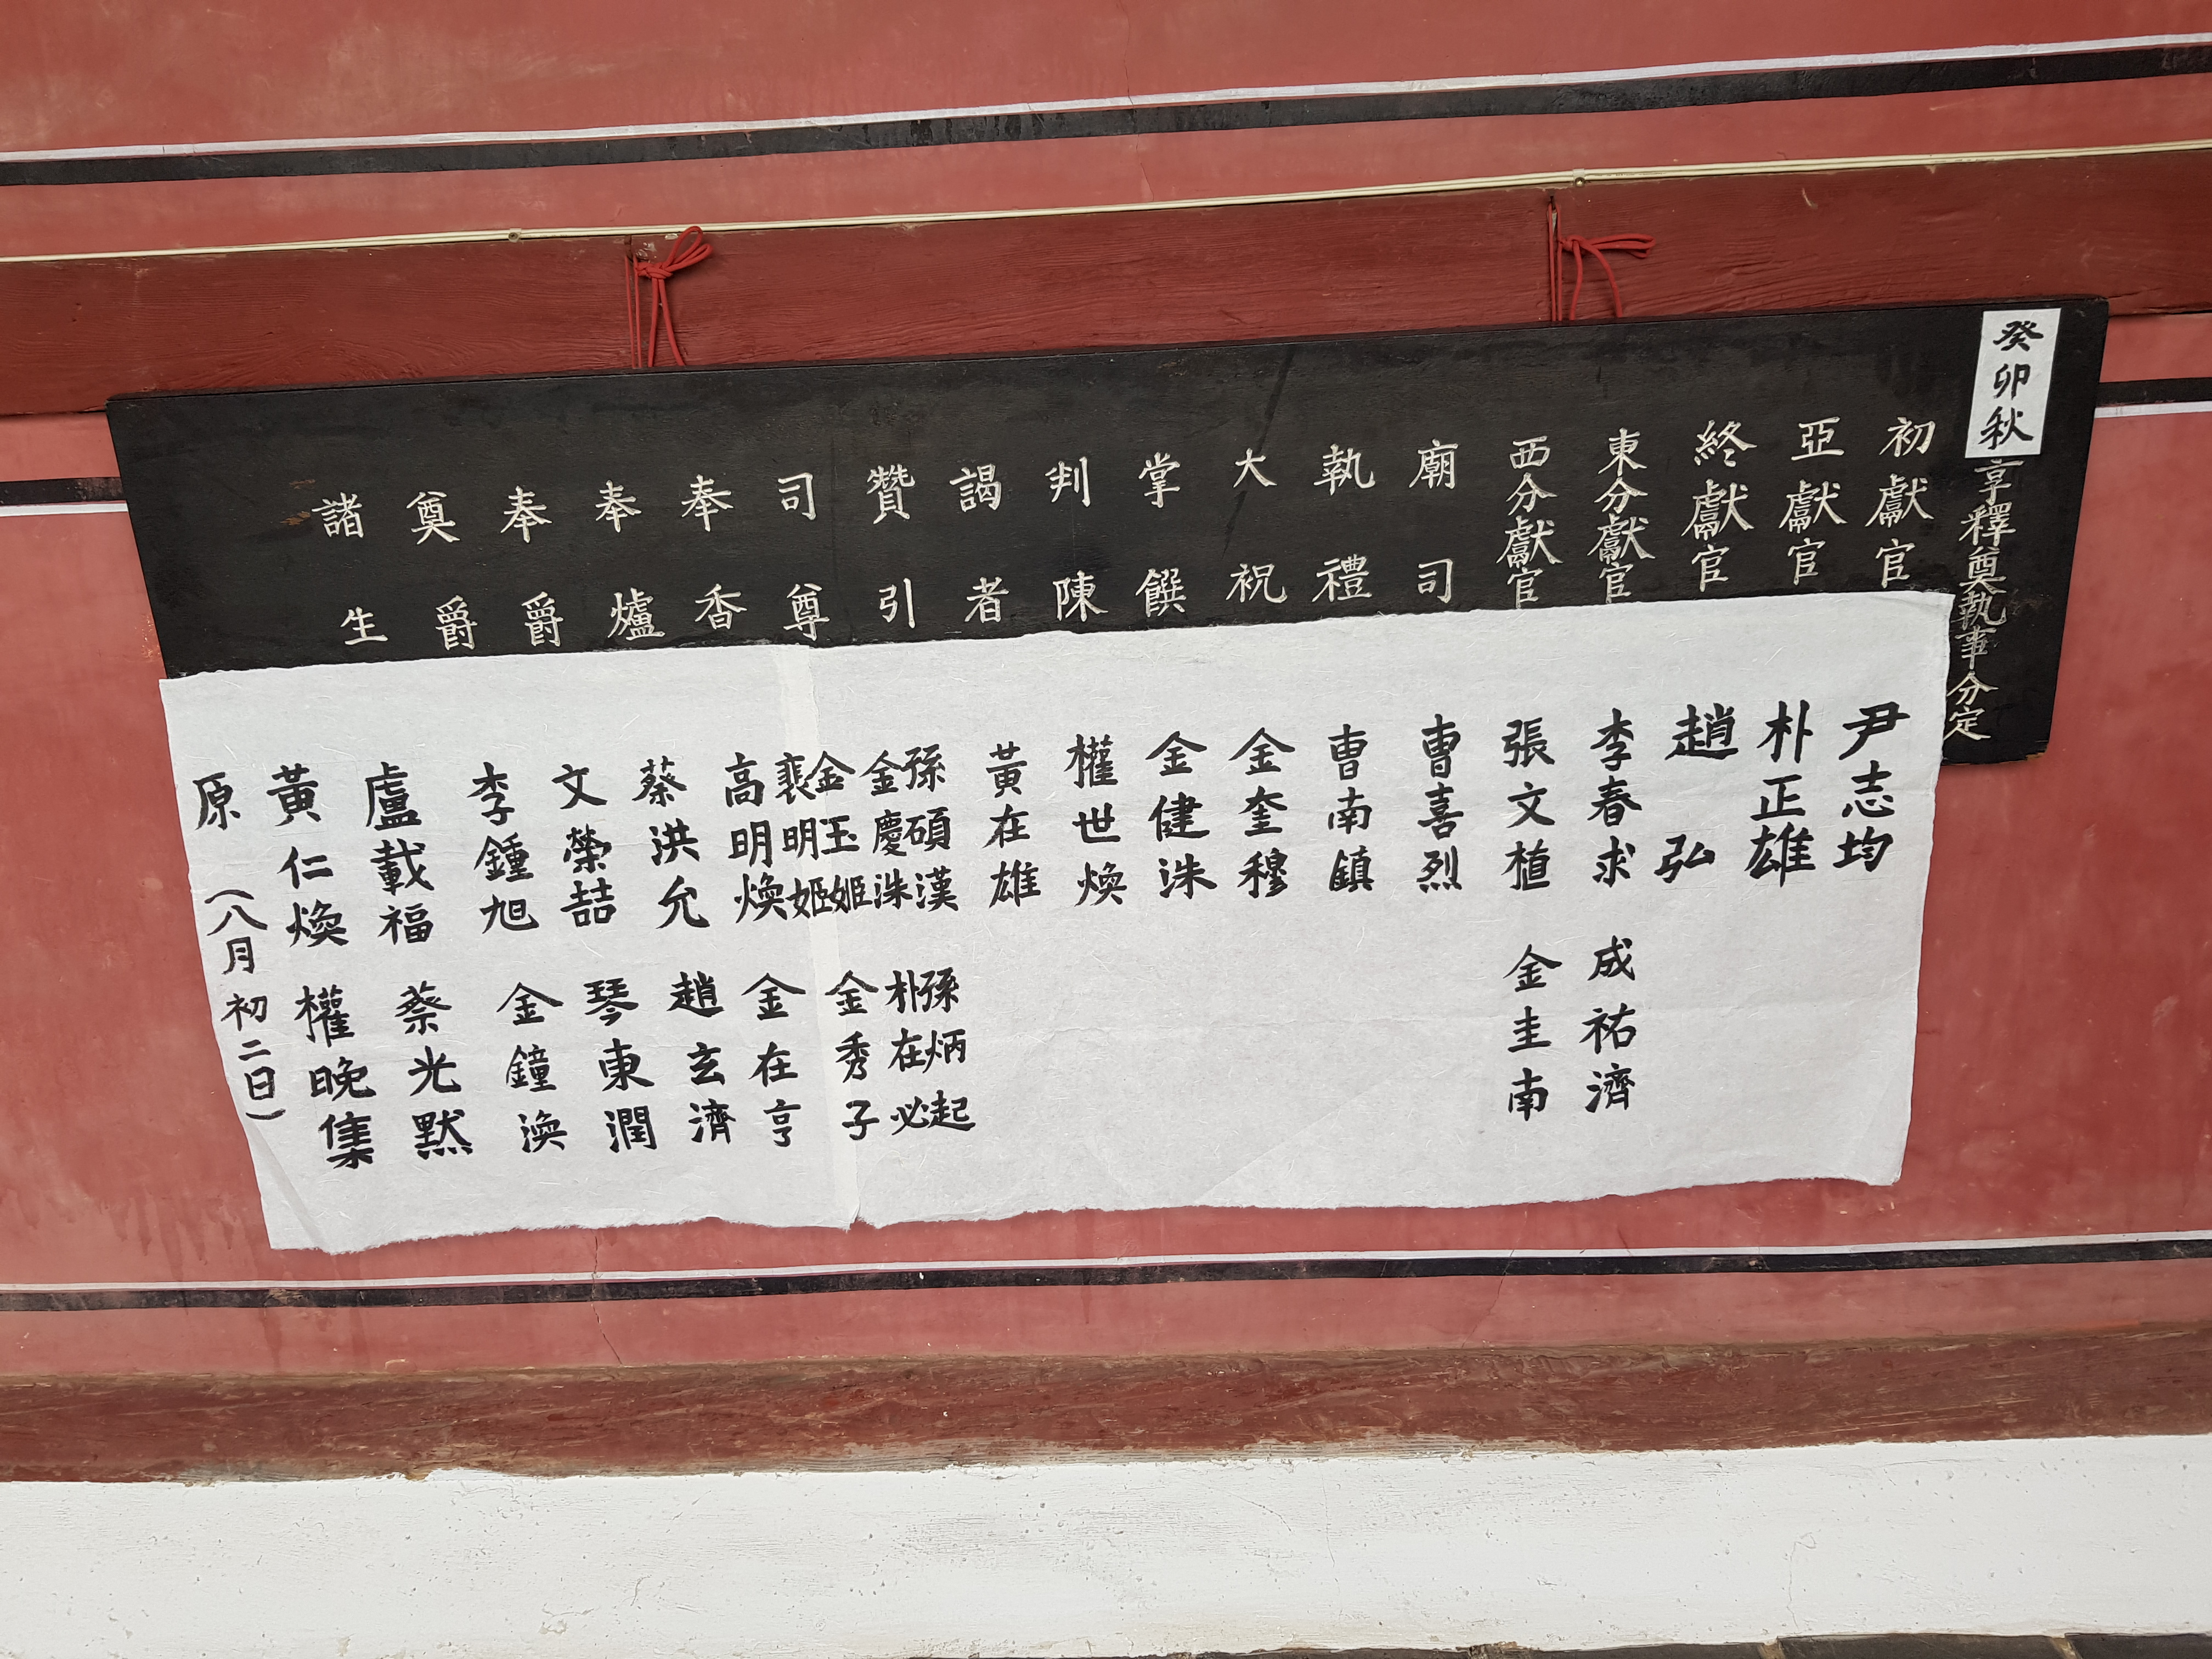 癸卯秋享釋奠執事分定
初獻官 尹志均
亞獻官 朴正雄
終獻官 趙弘
東分獻官 李春求 成祐濟
西分獻官 張文植 金圭南
廟司 曺喜烈
執禮 曺南鎮
大祝 金奎穆
掌饌 金健洙
判陳 權世煥
謁者 黃在雄
贊引 孫碩漢 孫炳起
金慶洙 朴在必
司尊 金玉姬 金秀子
裵明姬
奉香 高明煥 金在亨
奉爐 蔡洪允 趙玄濟
奉爵 文榮喆 琴東潤
奠爵 李鍾旭 金鐘渙
諸生 盧載福 蔡光默
黃仁煥 權晩集
原 (八月初二日)